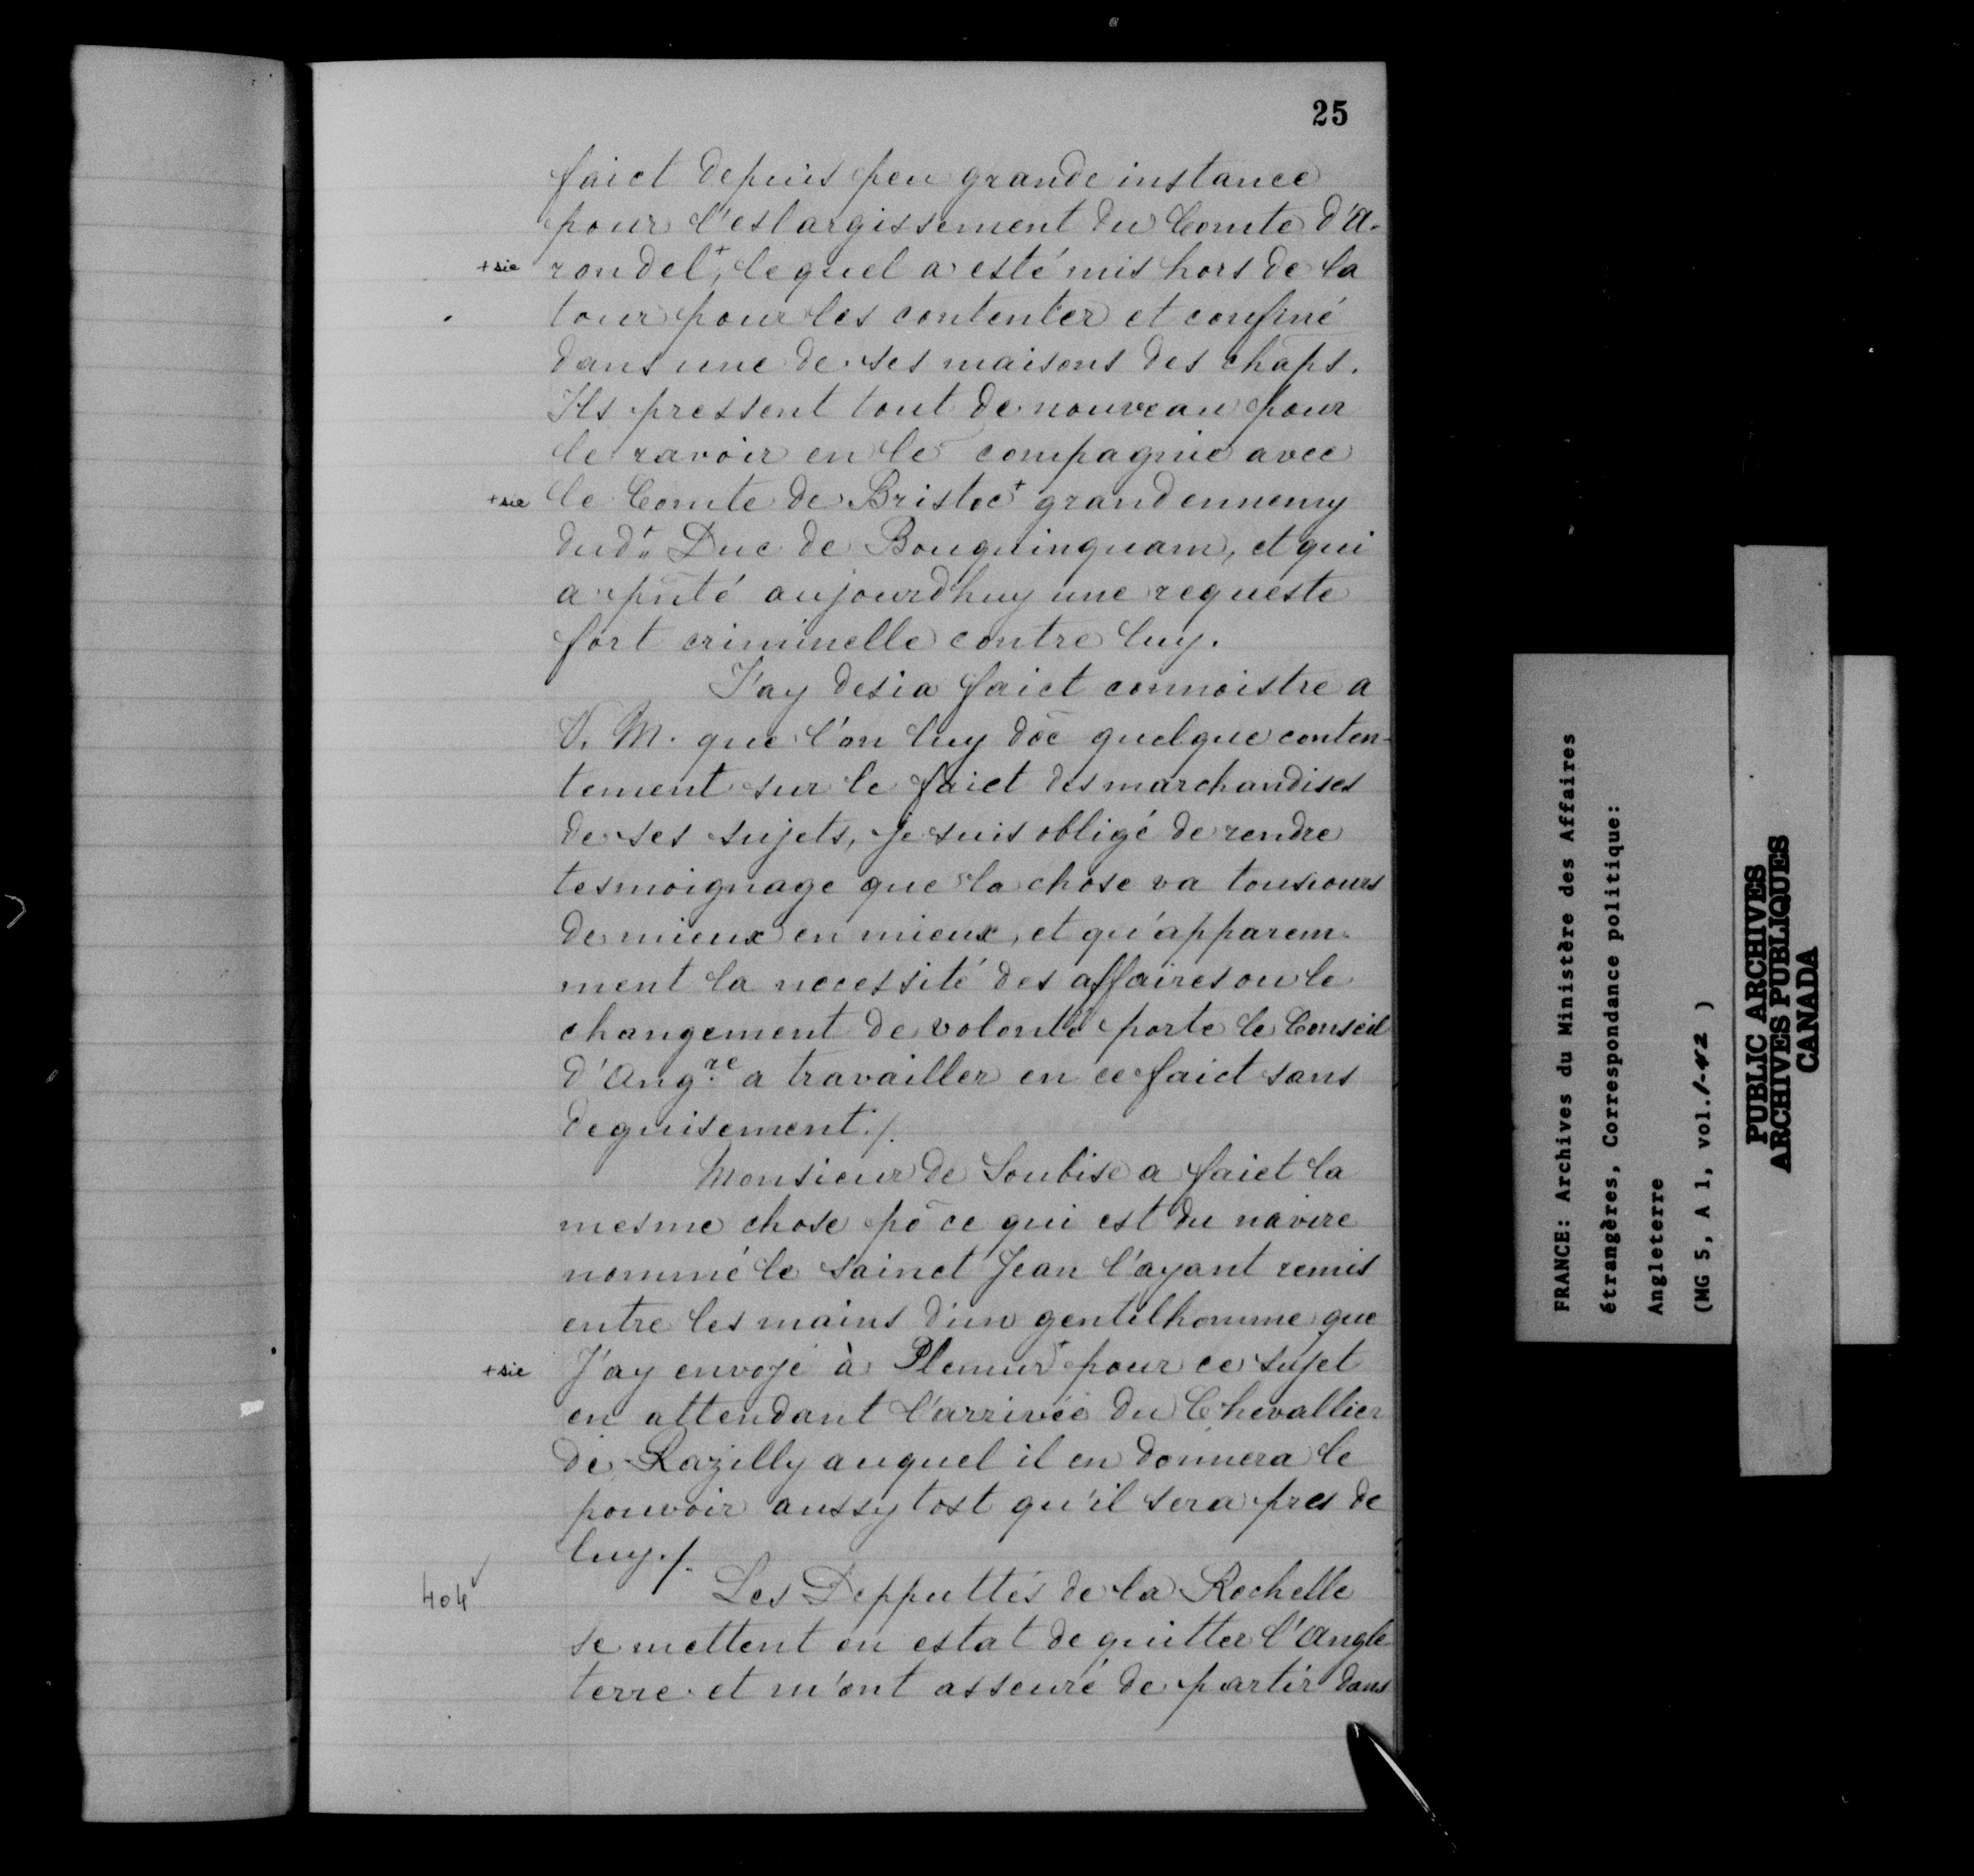 25
faict depuis peu grande instance
pour l'eslargissement du Comte d'A-
+sic rondel+, lequel a esté mis hors de la
tour pour les contenter et confiné
dans une de ses maisons des chãps.
Ils pressent tout de nouveau pour
le ravoir en le compagnie avec
+sic le Comte de Bristoc+ grand ennemy
dud.t Duc de Bouquinquam, et qui
a pñté aujourdhuy une requeste
fort criminelle contre luy.
J'ay desia faict connoistre a
V. M. que l'on luy dõe quelque conten-
tement sur le faict des marchandises
de ses sujets, je suis obligé de rendre
tesmoignage que la chose va tousiours
de mieux en mieux, et qu'apparem-
ment la necessité des affaires ou le
changement de volonté porte le Conseil
d'Ang.re a travailler en ce faict sans
deguisement./.
Monsieur de Soubise a faict la
mesme chose põ ce qui est du navire
nommé le Sainct Jean l'ayant remis
entre les mains d'un gentilhomme que
+sic J'ay envoyé à Plemur+ pour ce sujet
en attendant l'arrivée du Chevallier
de Razilly auquel il en donnera le
pouvoir aussy tost qu'il sera pres de
luy./.
404 Les Depputtés de la Rochelle
se mettent en estat de quitter l'Angle
terre et m'ont asseuré de partir dans
FRANCE: Archives du Ministère des Affaires
étrangères, Correspondance politique:
Angleterre
(MG 5, A 1, vol. 1-42 )
PUBLIC ARCHIVES
ARCHIVES PUBLIQUES
CANADA